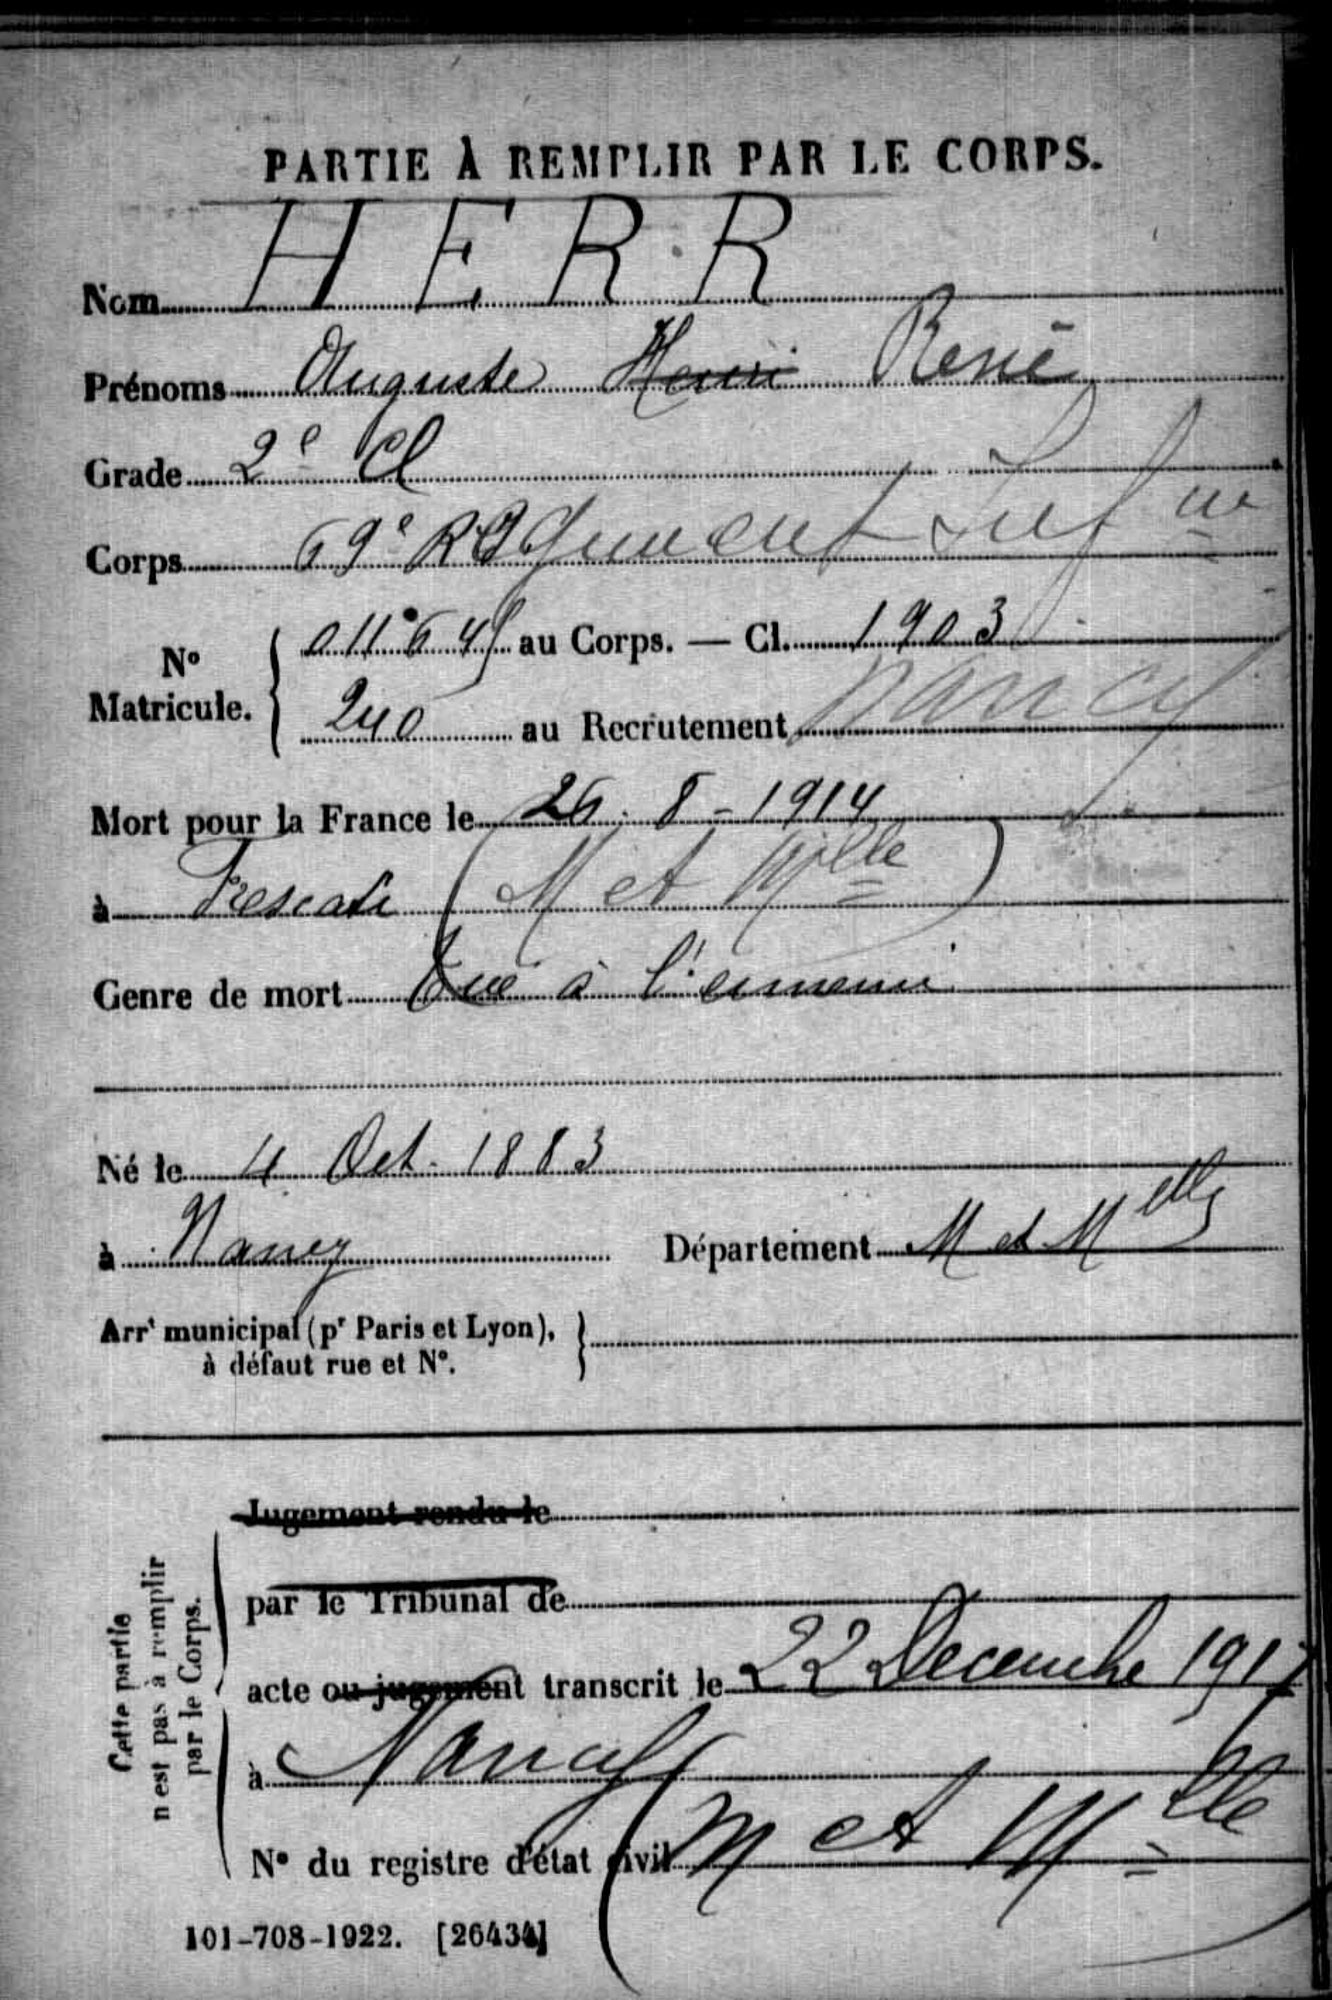 PARTIE À REMPLIR PAR LE CORPS.
Nom HERR
Prénoms Auguste Henri René
Grade 2e Cl
Corps 69e Régiment Inf ie
No Matricule. 011645 au Corps. — Cl. 1903
240 au Recrutement Nancy
Mort pour la France le 26-8-1914
à Frescati (M et Mlle)
Genre de mort Tué à l'ennemi
Né le 4 Oct. 1883
à Nancy Département M et Melle
Arrt municipal (pr Paris et Lyon),
à défaut rue et No.
Jugement rendu le
par le Tribunal de
acte ou jugement transcrit le 22 Decembre 1917
à Nancy
No du registre d'état civil (M et Mlle)
Cette partie
n'est pas à remplir
par le Corps.
101-708-1922. [26434]